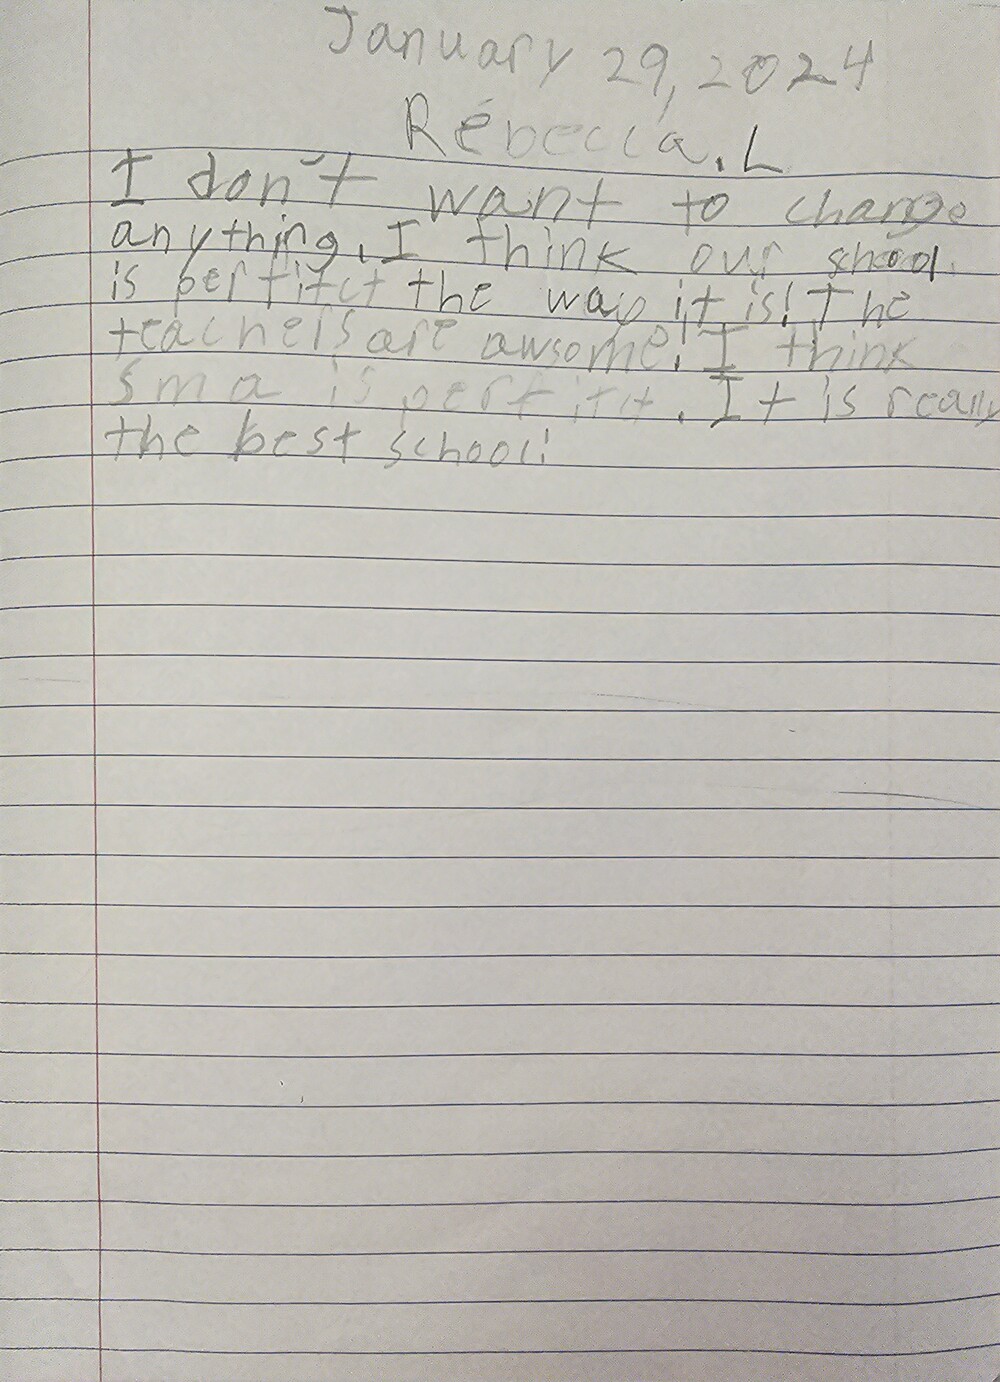 January 29, 2024
Rebecca.L
I don't want to change
anything. I think our school
is perfitct the way it is! The
teachers are awsome! I think
sma is perfitit. It is really
the best school!